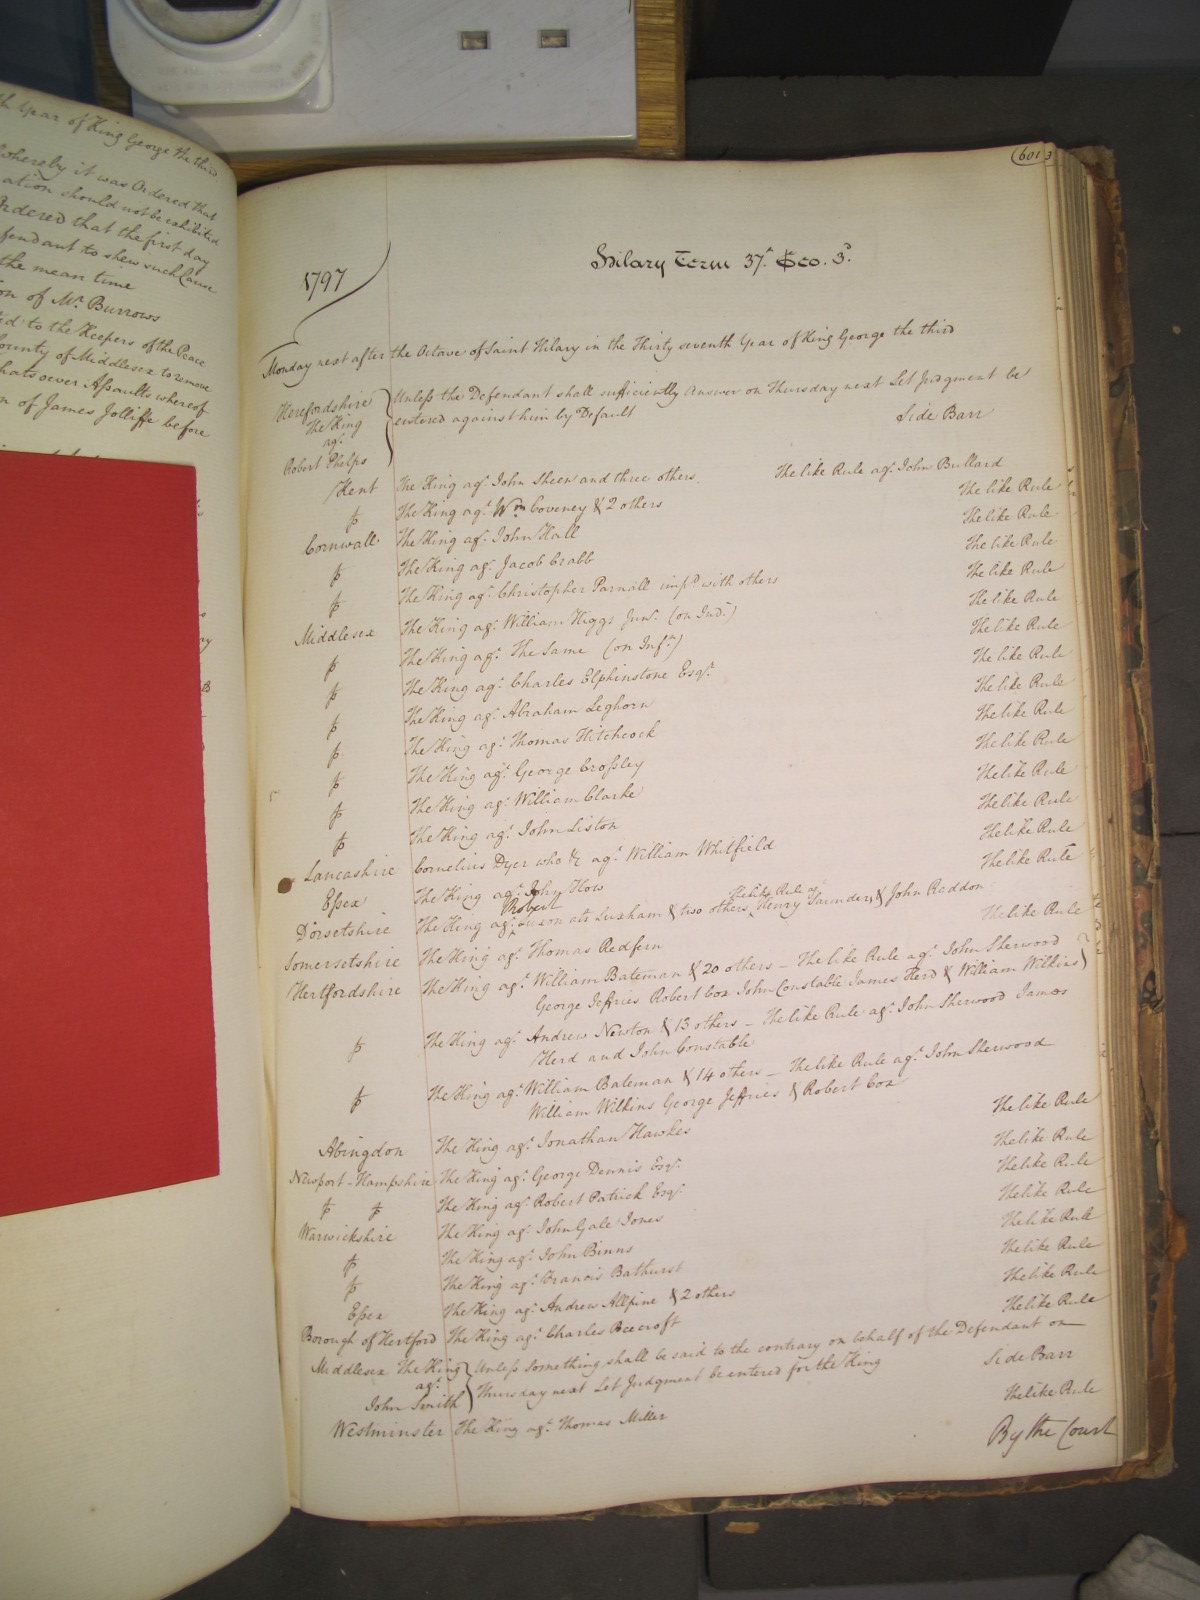 th Year of King George the third
whereby it was Ordered that
ation should not be exhibited
Ordered that the first day
fendant to shew such Cause
the mean time
on of Mr. Burrows
to the Keepers of the Peace
County of Middlesex to remove
whatsoever Assaults whereof
n of James Jolliffe before
601
Hilary Term 37th Geo. 3d.
1797
Monday next after the Octave of Saint Hilary in the Thirty seventh Year of King George the third
Herefordshire Unless the Defendant shall sufficiently answer on Thursday next Let Judgment be
The King entered against him by Default Side Barr
agt.
Robert Phelps
Kent The King agt. John Sheen and three others. The like Rule agt. John Bullard
The King agt. Wm Coveney & 2 others The like Rule
Cornwall The King agt. John Hall The like Rule
The King agt. Jacob Crabb The like Rule
The King agt. Christopher Parnall impd. with others The like Rule
Middlesex The King agt. William Higgs Junr. (on Indt.) The like Rule
The King agt. The Same (on Infn.) The like Rule
The King agt. Charles Elphinstone Esqr. The like Rule
The King agt. Abraham Leghorn The like Rule
The King agt. Thomas Hitchcock The like Rule
The King agt. George Crossley The like Rule
The King agt. William Clarke The like Rule
The King agt. John Liston The like Rule
Lancashire Cornelius Dyer who &c agt. William Whitfield The like Rule
Essex The King agt. John How The like Rule
Dorsetshire The King agt. Robert Luxon als Luxham & two others The like Rule agt. Henry Saunders & John Reddon
Somersetshire The King agt. Thomas Redfern The like Rule
Hertfordshire The King agt. William Bateman & 20 others – The like Rule agt. John Sherwood
George Jeffries Robert Cox John Constable James Herd & William Wilkins
The King agt. Andrew Newton & 13 others – The like Rule agt. John Sherwood James
Herd and John Constable
The King agt. William Bateman & 14 others – The like Rule agt. John Sherwood
William Wilkins George Jeffries & Robert Cox
Abingdon The King agt. Jonathan Hawkes The like Rule
Newport-Hampshire The King agt. George Dennis Esqr. The like Rule
The King agt. Robert Patrick Esqr. The like Rule
Warwickshire The King agt. John Gale Jones The like Rule
The King agt. John Binns The like Rule
The King agt. Francis Bathurst The like Rule
Essex The King agt. Andrew Allpine & 2 others The like Rule
Borough of Hertford The King agt. Charles Beecroft The like Rule
Middlesex The King Unless something shall be said to the contrary on behalf of the Defendant on
agt. Thursday next Let Judgment be entered for the King Side Barr
John Smith
Westminster The King agt. Thomas Miller The like Rule
By the Court